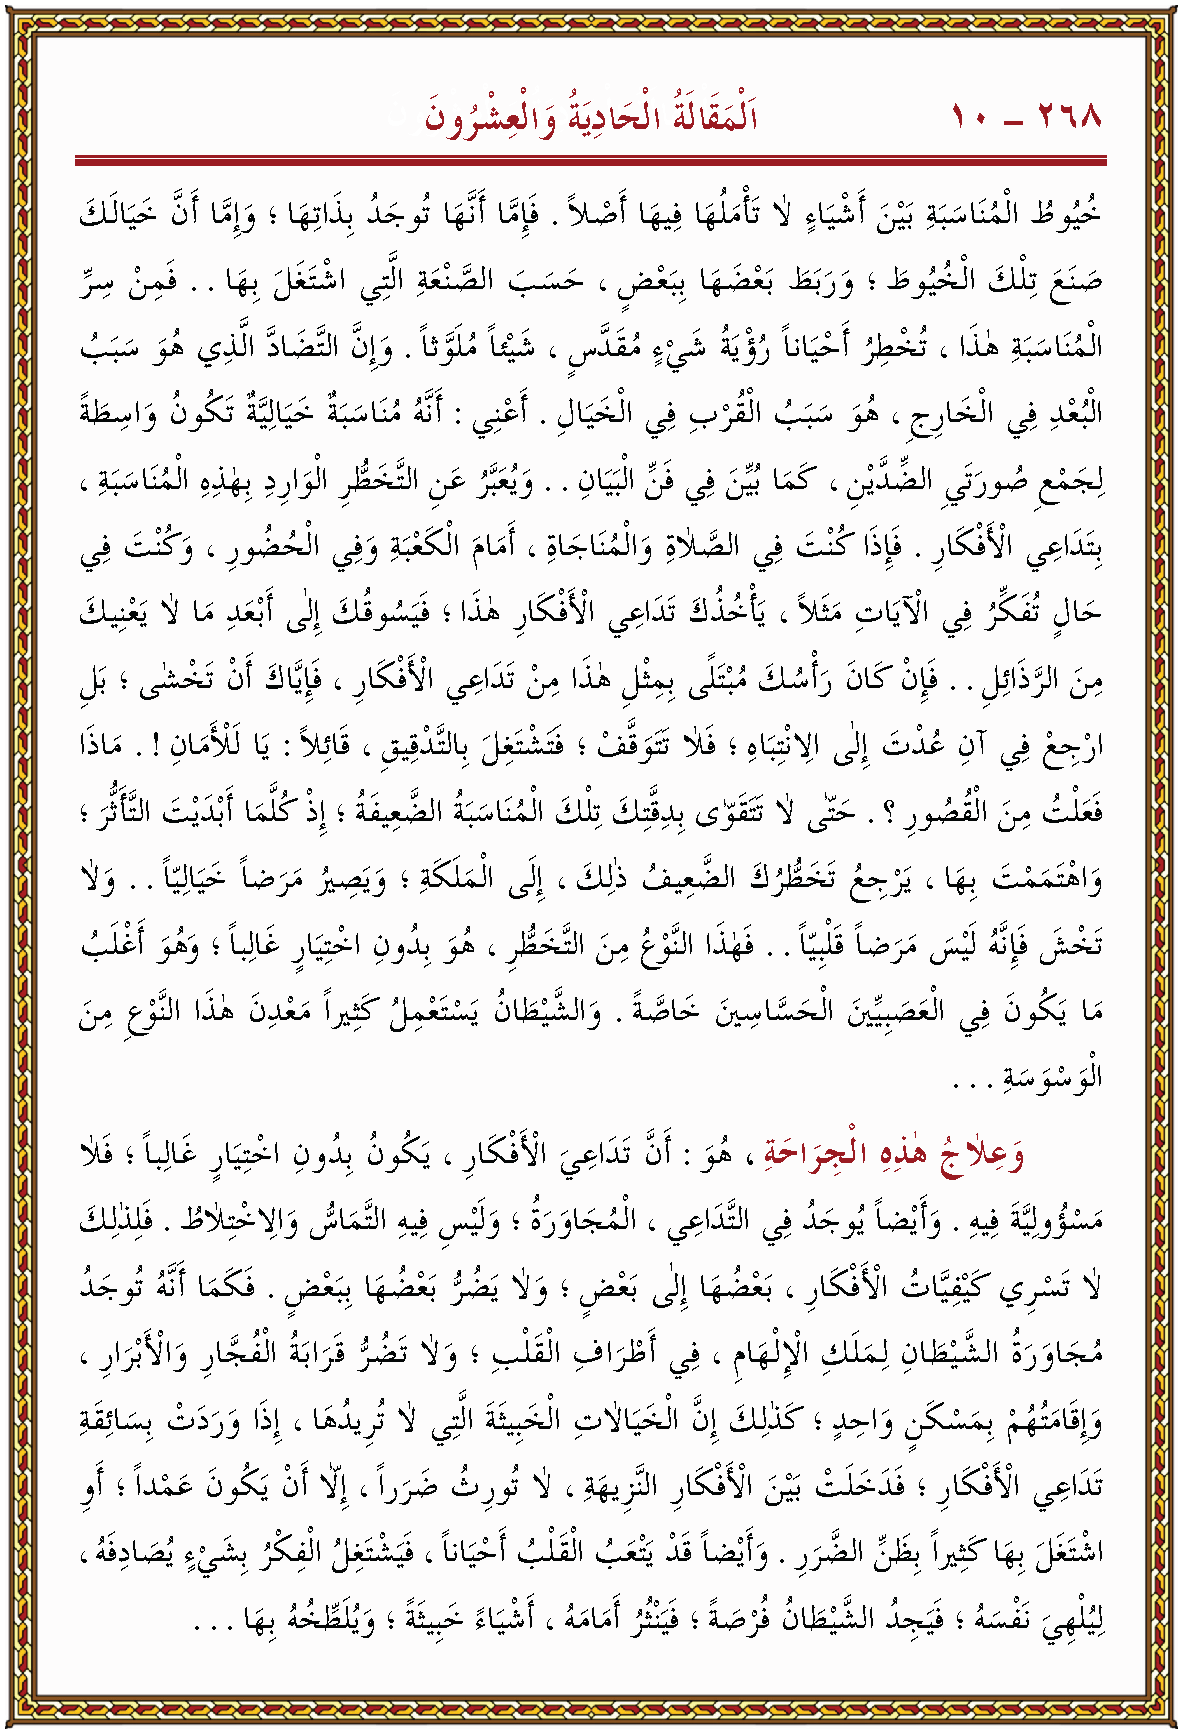 ٢٦٨ - ١٠ اَلْمَقَالَةُ الْحَادِيَةُ وَالْعِشْرُونَ
خُيُوطُ الْمُنَاسَبَةِ بَيْنَ أَشْيَاءٍ لاٰ تَأْمُلُهَا فِيهَا أَصْلاً . فَإِمَّا أَنَّهَا تُوجَدُ بِذَاتِهَا ؛ وَإِمَّا أَنَّ خَيَالَكَ
صَنَعَ تِلْكَ الْخُيُوطَ ؛ وَرَبَطَ بَعْضَهَا بِبَعْضٍ ، حَسَبَ الصَّنْعَةِ الَّتِي اشْتَغَلَ بِهَا . . فَمِنْ سِرِّ
الْمُنَاسَبَةِ هٰذَا ، تُخْطِرُ أَحْيَاناً رُؤْيَةُ شَيْءٍ مُقَدَّسٍ ، شَيْئاً مُلَوَّثاً . وَإِنَّ التَّضَادَّ الَّذِي هُوَ سَبَبُ
الْبُعْدِ فِي الْخَارِجِ ، هُوَ سَبَبُ الْقُرْبِ فِي الْخَيَالِ . أَعْنِي : أَنَّهُ مُنَاسَبَةٌ خَيَالِيَّةٌ تَكُونُ وَاسِطَةً
لِجَمْعِ صُورَتَيِ الضِّدَّيْنِ ، كَمَا بُيِّنَ فِي فَنِّ الْبَيَانِ . . وَيُعَبَّرُ عَنِ التَّخَطُّرِ الْوَارِدِ بِهٰذِهِ الْمُنَاسَبَةِ ،
بِتَدَاعِي الْأَفْكَارِ . فَإِذَا كُنْتَ فِي الصَّلاٰةِ وَالْمُنَاجَاةِ ، أَمَامَ الْكَعْبَةِ وَفِي الْحُضُورِ ، وَكُنْتَ فِي
حَالٍ تُفَكِّرُ فِي الْآيَاتِ مَثَلاً ، يَأْخُذُكَ تَدَاعِي الْأَفْكَارِ هٰذَا ؛ فَيَسُوقُكَ إِلٰى أَبْعَدِ مَا لاٰ يَعْنِيكَ
مِنَ الرَّذَائِلِ . . فَإِنْ كَانَ رَأْسُكَ مُبْتَلًى بِمِثْلِ هٰذَا مِنْ تَدَاعِي الْأَفْكَارِ ، فَإِيَّاكَ أَنْ تَخْشٰى ؛ بَلِ
ارْجِعْ فِي آنِ عُدْتَ إِلٰى الاِنْتِبَاهِ ؛ فَلاٰ تَتَوَقَّفْ ؛ فَتَشْتَغِلَ بِالتَّدْقِيقِ ، قَائِلاً : يَا لَلْأَمَانِ ! . مَاذَا
فَعَلْتُ مِنَ الْقُصُورِ ؟ . حَتّٰى لاٰ تَتَقَوّٰى بِدِقَّتِكَ تِلْكَ الْمُنَاسَبَةُ الضَّعِيفَةُ ؛ إِذْ كُلَّمَا أَبْدَيْتَ التَّأَثُّرَ ؛
وَاهْتَمَمْتَ بِهَا ، يَرْجِعُ تَخَطُّرُكَ الضَّعِيفُ ذٰلِكَ ، إِلَى الْمَلَكَةِ ؛ وَيَصِيرُ مَرَضاً خَيَالِيّاً . . وَلاٰ
تَخْشَ فَإِنَّهُ لَيْسَ مَرَضاً قَلْبِيّاً . . فَهٰذَا النَّوْعُ مِنَ التَّخَطُّرِ ، هُوَ بِدُونِ اخْتِيَارٍ غَالِباً ؛ وَهُوَ أَغْلَبُ
مَا يَكُونَ فِي الْعَصَبِيِّينَ الْحَسَّاسِينَ خَاصَّةً . وَالشَّيْطَانُ يَسْتَعْمِلُ كَثِيراً مَعْدِنَ هٰذَا النَّوْعِ مِنَ
الْوَسْوَسَةِ . . .
وَعِلاٰجُ هٰذِهِ الْجِرَاحَةِ ، هُوَ : أَنَّ تَدَاعِيَ الْأَفْكَارِ ، يَكُونُ بِدُونِ اخْتِيَارٍ غَالِباً ؛ فَلاٰ
مَسْؤُولِيَّةَ فِيهِ . وَأَيْضاً يُوجَدُ فِي التَّدَاعِي ، الْمُجَاوَرَةُ ؛ وَلَيْسِ فِيهِ التَّمَاسُّ وَالاِخْتِلاٰطُ . فَلِذٰلِكَ
لاٰ تَسْرِي كَيْفِيَّاتُ الْأَفْكَارِ ، بَعْضُهَا إِلٰى بَعْضٍ ؛ وَلاٰ يَضُرُّ بَعْضُهَا بِبَعْضٍ . فَكَمَا أَنَّهُ تُوجَدُ
مُجَاوَرَةُ الشَّيْطَانِ لِمَلَكِ الْإِلْهَامِ ، فِي أَطْرَافِ الْقَلْبِ ؛ وَلاٰ تَضُرُّ قَرَابَةُ الْفُجَّارِ وَالْأَبْرَارِ ،
وَإِقَامَتُهُمْ بِمَسْكَنٍ وَاحِدٍ ؛ كَذٰلِكَ إِنَّ الْخَيَالاٰتِ الْخَبِيثَةَ الَّتِي لاٰ تُرِيدُهَا ، إِذَا وَرَدَتْ بِسَائِقَةِ
تَدَاعِي الْأَفْكَارِ ؛ فَدَخَلَتْ بَيْنَ الْأَفْكَارِ النَّزِيهَةِ ، لاٰ تُورِثُ ضَرَراً ، إِلاّٰ أَنْ يَكُونَ عَمْداً ؛ أَوِ
اشْتَغَلَ بِهَا كَثِيراً بِظَنِّ الضَّرَرِ . وَأَيْضاً قَدْ يَتْعَبُ الْقَلْبُ أَحْيَاناً ، فَيَشْتَغِلُ الْفِكْرُ بِشَيْءٍ يُصَادِفُهُ ،
لِيُلْهِيَ نَفْسَهُ ؛ فَيَجِدُ الشَّيْطَانُ فُرْصَةً ؛ فَيَنْثُرُ أَمَامَهُ ، أَشْيَاءً خَبِيثَةً ؛ وَيُلَطِّخُهُ بِهَا . . .